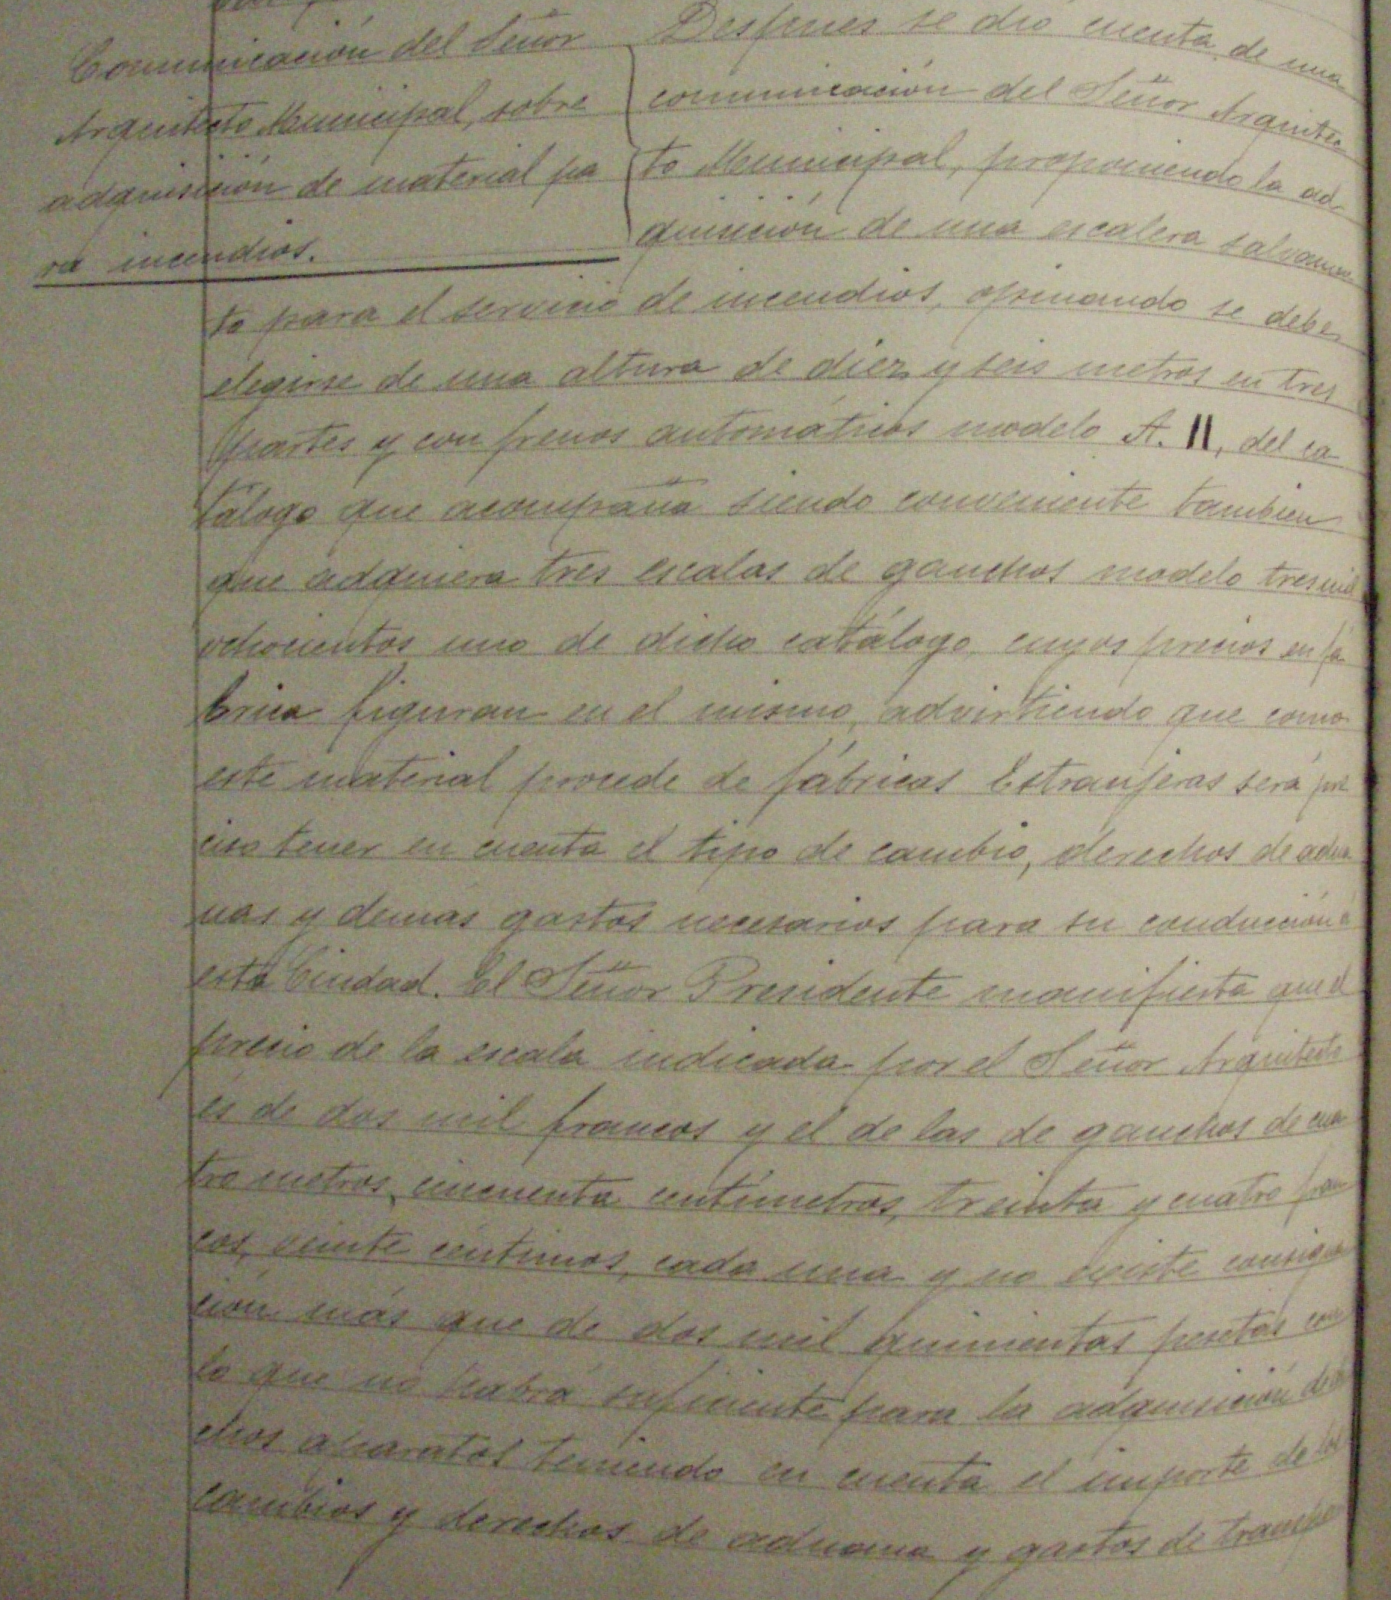 Comunicación del Señor
Arquitecto Municipal, sobre
adquisición de material pa
ra incendios.
Despues se dió cuenta de una
comunicación del Señor Arquitec
to Municipal, proponiendo la ad
quisición de una escalera salvamen
to para el servicio de incendios, opinando se debe
elegirse de una altura de diez y seis metros en tres
partes y con frenos automáticos modelo A. 11, del ca
tálogo que acompaña siendo conveniente tambien
que adquiera tres escalas de ganchos modelo tres mil
ochocientos uno de dicho catálogo cuyos precios en fá
brica figuran en el mismo, advirtiendo que como
este material procede de fábricas Estranjeras será pre
ciso tener en cuenta el tipo de cambio, derechos de adua
nas y demás gastos necesarios para su conducción á
esta Ciudad. El Señor Presidente manifiesta que el
precio de la escala indicada por el Señor Arquitecto
es de dos mil francos y el de las de ganchos de cua
tro metros cincuenta centimetros, treinta y cuatro fran
cos, veinte centimos, cada una y no existe consigna
ción más que de dos mil quinientas pesetas con
lo que no habrá suficiente para la adquisición de di
chos aparatos teniendo en cuenta el importe de los
cambios y derechos de aduana y gastos de transpor